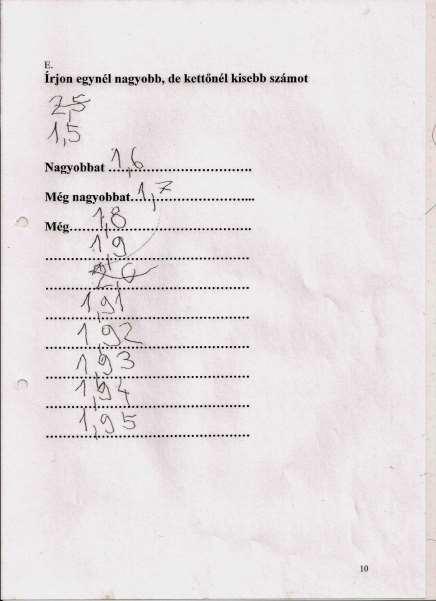 E.
Írjon egynél nagyobb, de kettőnél kisebb számot
2,5
1,5
Nagyobbat 1,6
Még nagyobbat 1,7
Még 1,8
1,9
2,0
1,91
1,92
1,93
1,94
1,95
10